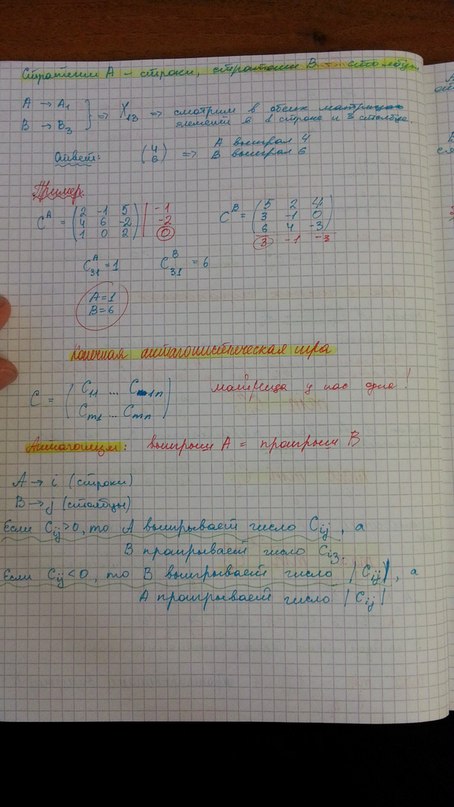 Стратегии А - строки, стратегии В - столбцы
А → А₁
В → В₃ } ⇒ X₁₃ ⇒ смотрим в обеих матрицах
элемент в 1 строке и 3 столбце.
Ответ: (4 6) ⇒ А выиграл 4
В выиграл 6
Пример.
Cᴬ = (2 -1 5 | -1
4 6 -2 | -2
1 0 2) | 0
Cᴮ = (5 2 4
3 -1 0
6 4 -3)
3 -1 -3
Cᴬ₃₁ = 1 Cᴮ₃₁ = 6
А=1
В=6
Конечная антагонистическая игра
C = (C₁₁ ... C₁ₙ
Cₘ₁ ... Cₘₙ) матрица у нас одна!
Антагонизм: выигрыш А = проигрыш В
А → i (строки)
В → j (столбцы)
Если Cij>0, то А выигрывает число Cij, а
В проигрывает число Cij.
Если Cij<0, то В выигрывает число |Cij|, а
А проигрывает число |Cij|